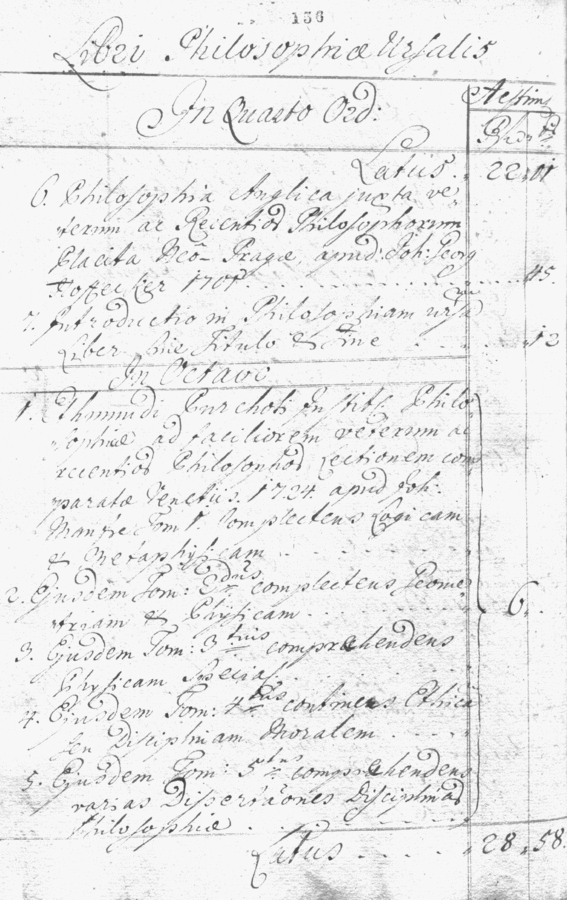 136
Libri Philosophiæ Ursalis
In Quarto Ord:
Aestim
Latus. 22 11
6. Philosophia Anglica juxta ve
terum ac Recentior Philosophorum
Placita Neo-Pragæ, apud Joh: Georg
1701 45
7. Introductio in Philosophiam
Liber sine Titulo & Fine 12
In Octavo
1. Edmundi Purchoti Instit: Philo
sophiæ ad faciliorem veterum ac
recentior Philosophor Lectionem com
paratæ Venetiis. 1724 apud Joh:
Manfrè Tom 1. Complectens Logicam
& Metaphysicam
2. Ejusdem Tom: 2dus complectens Geome
triam & Physicam 6.
3. Ejusdem Tom: 3tius comprehendens
Physicam Special.
4. Ejusdem Tom: 4tus continens Ethica
seu Disciplinam Moralem
5. Ejusdem Tom: 5tus comprehendens
varias Dissertãones Disciplinas
Philosophiæ
Latus 28 58.